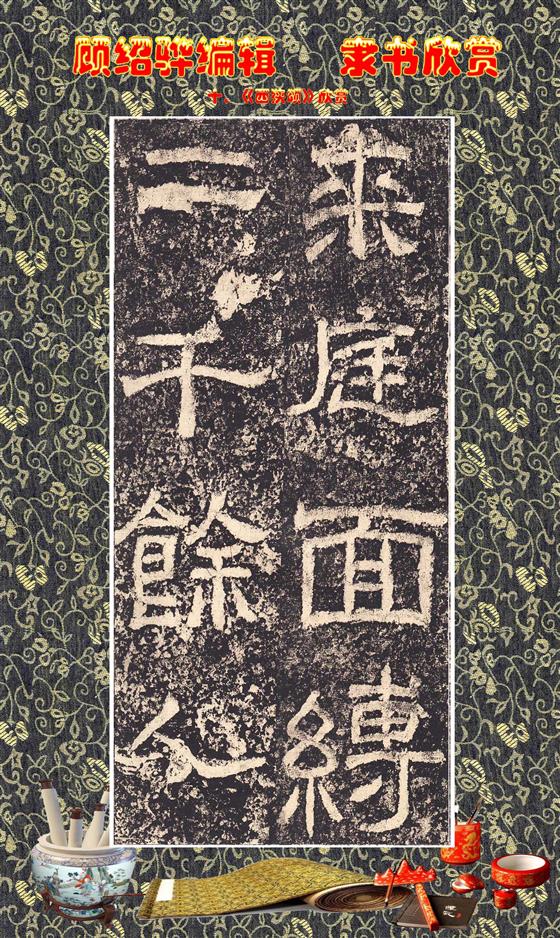 顾绍骅编辑 隶书欣赏
十、《西狭颂》欣赏
来庭面縛
二千餘人